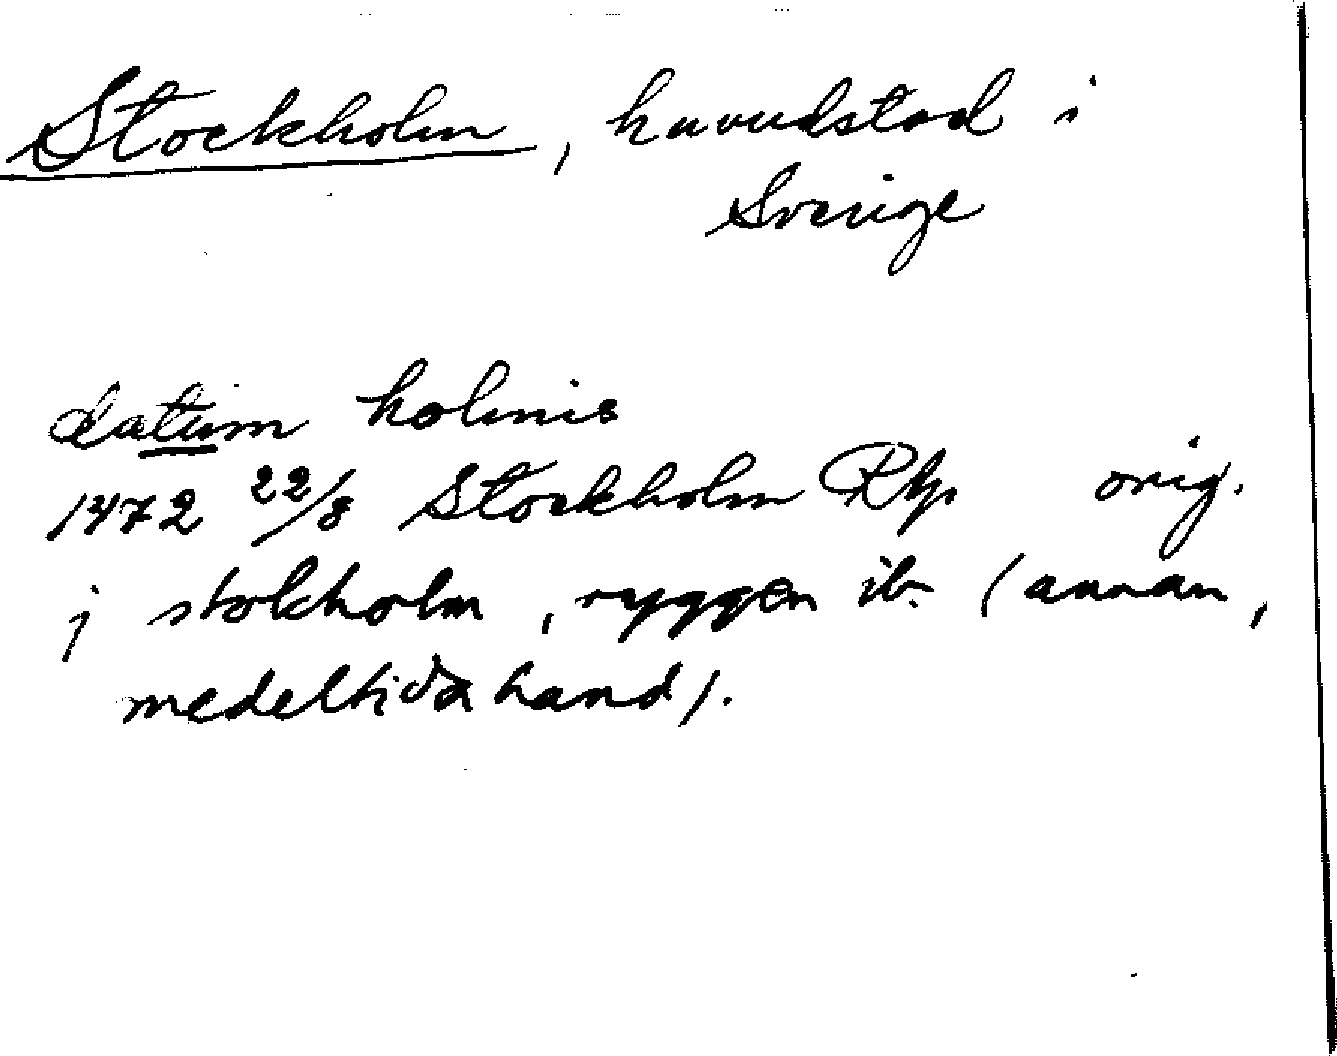 Stockholm, huvudstad i
Sverige
datum holmis
1472 22/8 Stockholm RAp orig.
j stokholm, ryggen ib. (annan,
medeltida hand).